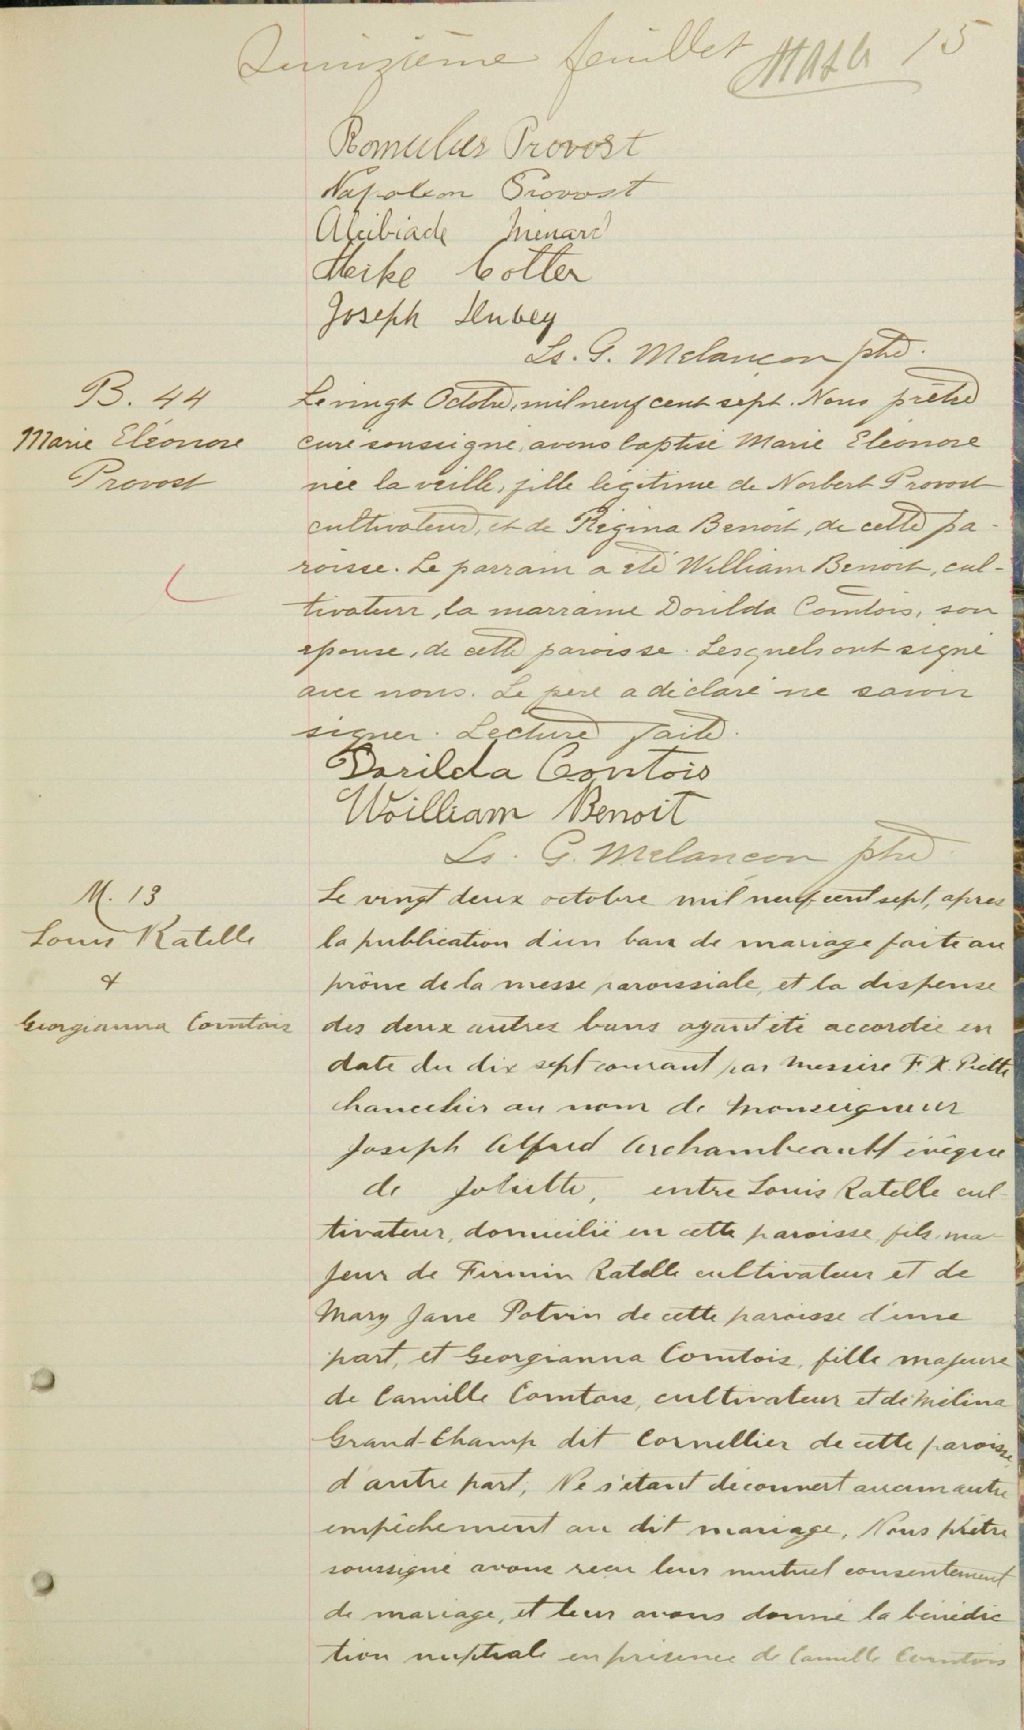 Quinzième feuillet 15
Romulus Provost
Napoleon Provost
Alcibiade Ménard
Meike Cotter
Joseph Dubey
Ls. G. Melançon ptre.
B. 44
Marie Eléonore
Provost
Le vingt Octobre, mil neuf cent sept. Nous prêtre
curé soussigné, avons baptisé Marie Eléonore
née la veille, fille légitime de Norbert Provost
cultivateur, et de Régina Benoit, de cette pa-
roisse. Le parrain a été William Benoit, cul-
tivateur, la marraine Dorilda Comtois, son
épouse, de cette paroisse. Lesquels ont signé
avec nous. Le père a déclaré ne savoir
signer. Lecture faite.
Dorilda Contois
Woilliam Benoit
Ls. G. Melançon ptre
M. 13
Louis Ratelle
&
Georgianna Comtois
Le vingt deux octobre mil neuf cent sept, après
la publication d'un ban de mariage faite au
prône de la messe paroissiale, et la dispense
des deux autres bans ayant été accordée en
date du dix sept courant par Messire F. X. Piette
chancelier au nom de Monseigneur
Joseph Alfred Archambeault évêque
de Joliette, entre Louis Ratelle cul-
tivateur, domicilié en cette paroisse, fils ma-
jeur de Firmin Ratelle cultivateur et de
Mary Jane Potvin de cette paroisse d'une
part, et Georgianna Comtois, fille majeure
de Camille Comtois, cultivateur et de Mélina
Grand-Champ dit Cornellier de cette paroisse
d'autre part; Ne s'étant découvert aucun autre
empêchement au dit mariage, Nous prêtre
soussigné avons reçu leur mutuel consentement
de mariage, et leur avons donné la bénédic
tion nuptiale en présence de Camille Comtois